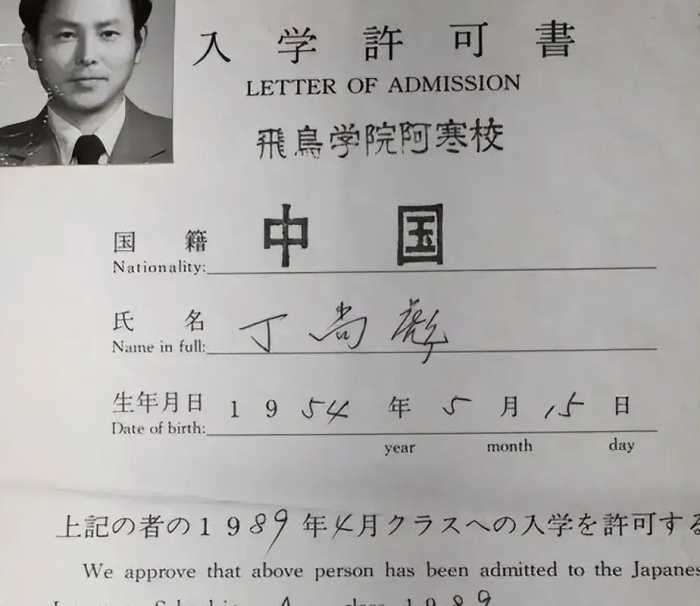 入学許可書
LETTER OF ADMISSION
飛鳥学院阿寒校
国籍 中国
Nationality:
氏名 丁尚彪
Name in full:
生年月日 1954年5月15日
Date of birth:
year month day
上記の者の1989年4月クラスへの入学を許可する
We approve that above person has been admitted to the Japanes
class 1989